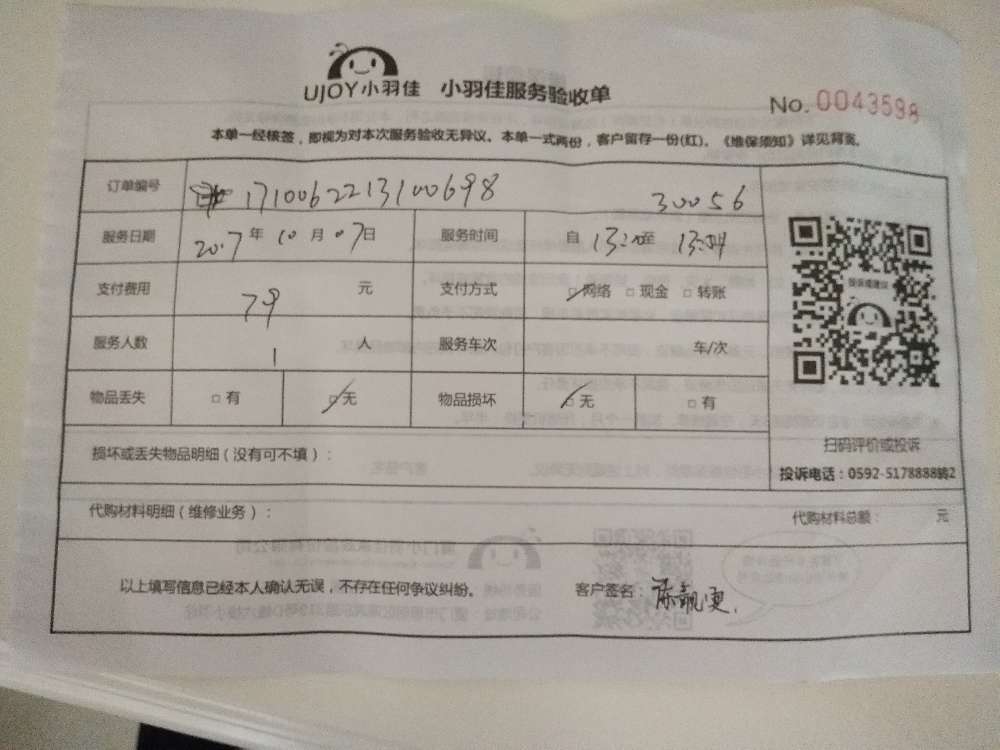 UJOY小羽佳 小羽佳服务验收单
No. 0043598
本单一经核签，即视为对本次服务验收无异议。本单一式两份，客户留存一份(红)。《维保须知》详见背面。
订单编号 1710062213100698 30056
服务日期 2017年10月07日 服务时间 自13:20至13:54
支付费用 79 元 支付方式 □网络 □现金 □转账
服务人数 1 人 服务车次 车/次
物品丢失 □有 □无 物品损坏 □无 □有
投诉或建议
扫码评价或投诉
投诉电话：0592-5178888转2
损坏或丢失物品明细（没有可不填）：
代购材料明细（维修业务）： 代购材料总额： 元
以上填写信息已经本人确认无误，不存在任何争议纠纷。 客户签名：陈